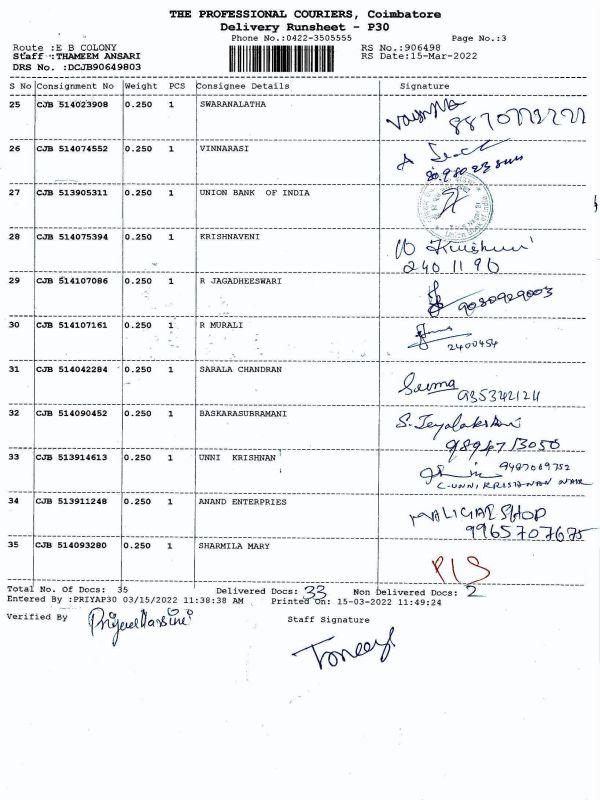 THE PROFESSIONAL COURIERS, Coimbatore
Delivery Runsheet - P30
Phone No.:0422-3505555 Page No.:3
Route :E B COLONY RS No.:906498
Staff :THAMEEM ANSARI RS Date:15-Mar-2022
DRS No. :DCJB90649803
S No Consignment No Weight PCS Consignee Details Signature
25 CJB 514023908 0.250 1 SWARANALATHA
26 CJB 514074552 0.250 1 VINNARASI
27 CJB 513905311 0.250 1 UNION BANK OF INDIA
28 CJB 514075394 0.250 1 KRISHNAVENI
240 11 96
29 CJB 514107086 0.250 1 R JAGADHEESWARI
9080929003
30 CJB 514107161 0.250 1 R MURALI
2400454
31 CJB 514042284 0.250 1 SARALA CHANDRAN
32 CJB 514090452 0.250 1 BASKARASUBRAMANI
S. Jeyalakshmi
9894713050
33 CJB 513914613 0.250 1 UNNI KRISHNAN
9487069752
34 CJB 513911248 0.250 1 ANAND ENTERPRIES
MALIGAI SHOP
9965707675
35 CJB 514093280 0.250 1 SHARMILA MARY
P/S
Total No. Of Docs: 35 Delivered Docs: 33 Non Delivered Docs: 2
Entered By :PRIYAP30 03/15/2022 11:38:38 AM Printed On: 15-03-2022 11:49:24
Verified By Staff Signature